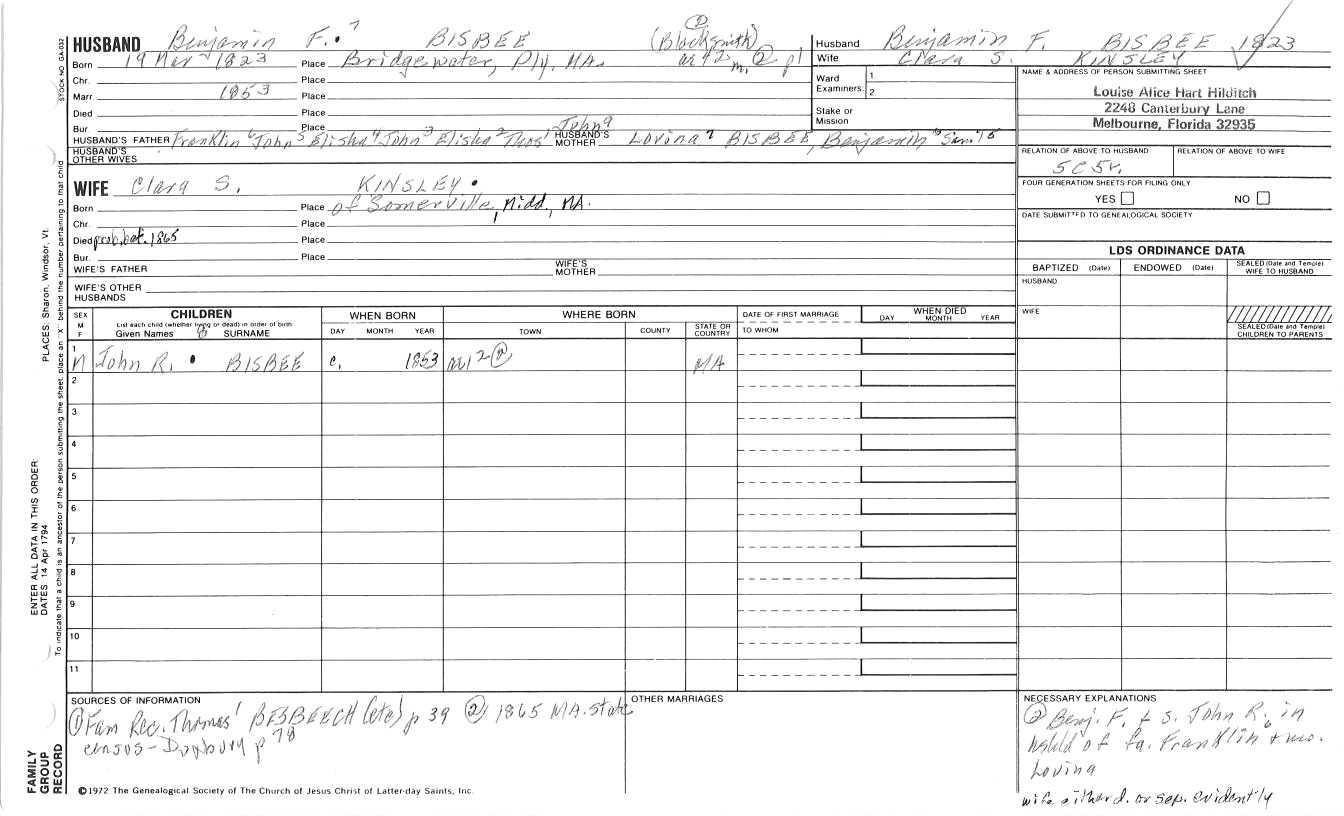 STOCK NO GSA-032
HUSBAND Benjamin F. 7 BISBEE (Blacksmith) ②
Born 19 Mar 1823 Place Bridgewater, Ply. MA. ae 42 m. ② p1
Chr. Place
Marr. 1853 Place
Died Place
Bur Place
HUSBAND'S FATHER Franklin 6 John 5 Elisha 4 John 3 Elisha 2 Thos 1 HUSBAND'S MOTHER Lovina BISBEE, Benjamin
HUSBAND'S OTHER WIVES
WIFE Clara S. KINSLEY
Born Place of Somerville, Midd., MA.
Chr. Place
Died prob. bef. 1865 Place
Bur. Place
WIFE'S FATHER WIFE'S MOTHER
WIFE'S OTHER HUSBANDS
Husband Benjamin F. BISBEE 1823
Wife Clara S. KINSLEY
Ward Examiners: 1
2
Stake or Mission
NAME & ADDRESS OF PERSON SUBMITTING SHEET
Louise Alice Hart Hilditch
2248 Canterbury Lane
Melbourne, Florida 32935
RELATION OF ABOVE TO HUSBAND RELATION OF ABOVE TO WIFE
5C5r.
FOUR GENERATION SHEETS FOR FILING ONLY
YES NO
DATE SUBMITTED TO GENEALOGICAL SOCIETY
LDS ORDINANCE DATA
BAPTIZED (Date) ENDOWED (Date) SEALED (Date and Temple) WIFE TO HUSBAND
HUSBAND
WIFE
SEALED (Date and Temple) CHILDREN TO PARENTS
SEX M F
CHILDREN
List each child (whether living or dead) in order of birth
Given Names SURNAME
WHEN BORN
DAY MONTH YEAR
WHERE BORN
TOWN COUNTY STATE OR COUNTRY
DATE OF FIRST MARRIAGE
TO WHOM
WHEN DIED
DAY MONTH YEAR
1 M John R. BISBEE c. 1853 ae 12 ② MA
2
3
4
5
6
7
8
9
10
11
SOURCES OF INFORMATION
① Fam Rec. Thomas 1 BESBEECH (etc) p 39 ② 1865 MA. state
census - Duxbury p 78
OTHER MARRIAGES
NECESSARY EXPLANATIONS
② Benj. F. & s. John R. in
hshld of fa. Franklin 6 & mo.
Lovina
wife either d. or sep. evidently
©1972 The Genealogical Society of The Church of Jesus Christ of Latter-day Saints, Inc.
FAMILY GROUP RECORD
ENTER ALL DATA IN THIS ORDER:
DATES: 14 Apr 1794
PLACES: Sharon, Windsor, Vt.
To indicate that a child is an ancestor of the person submitting the sheet, place an "X" behind the number pertaining to that child